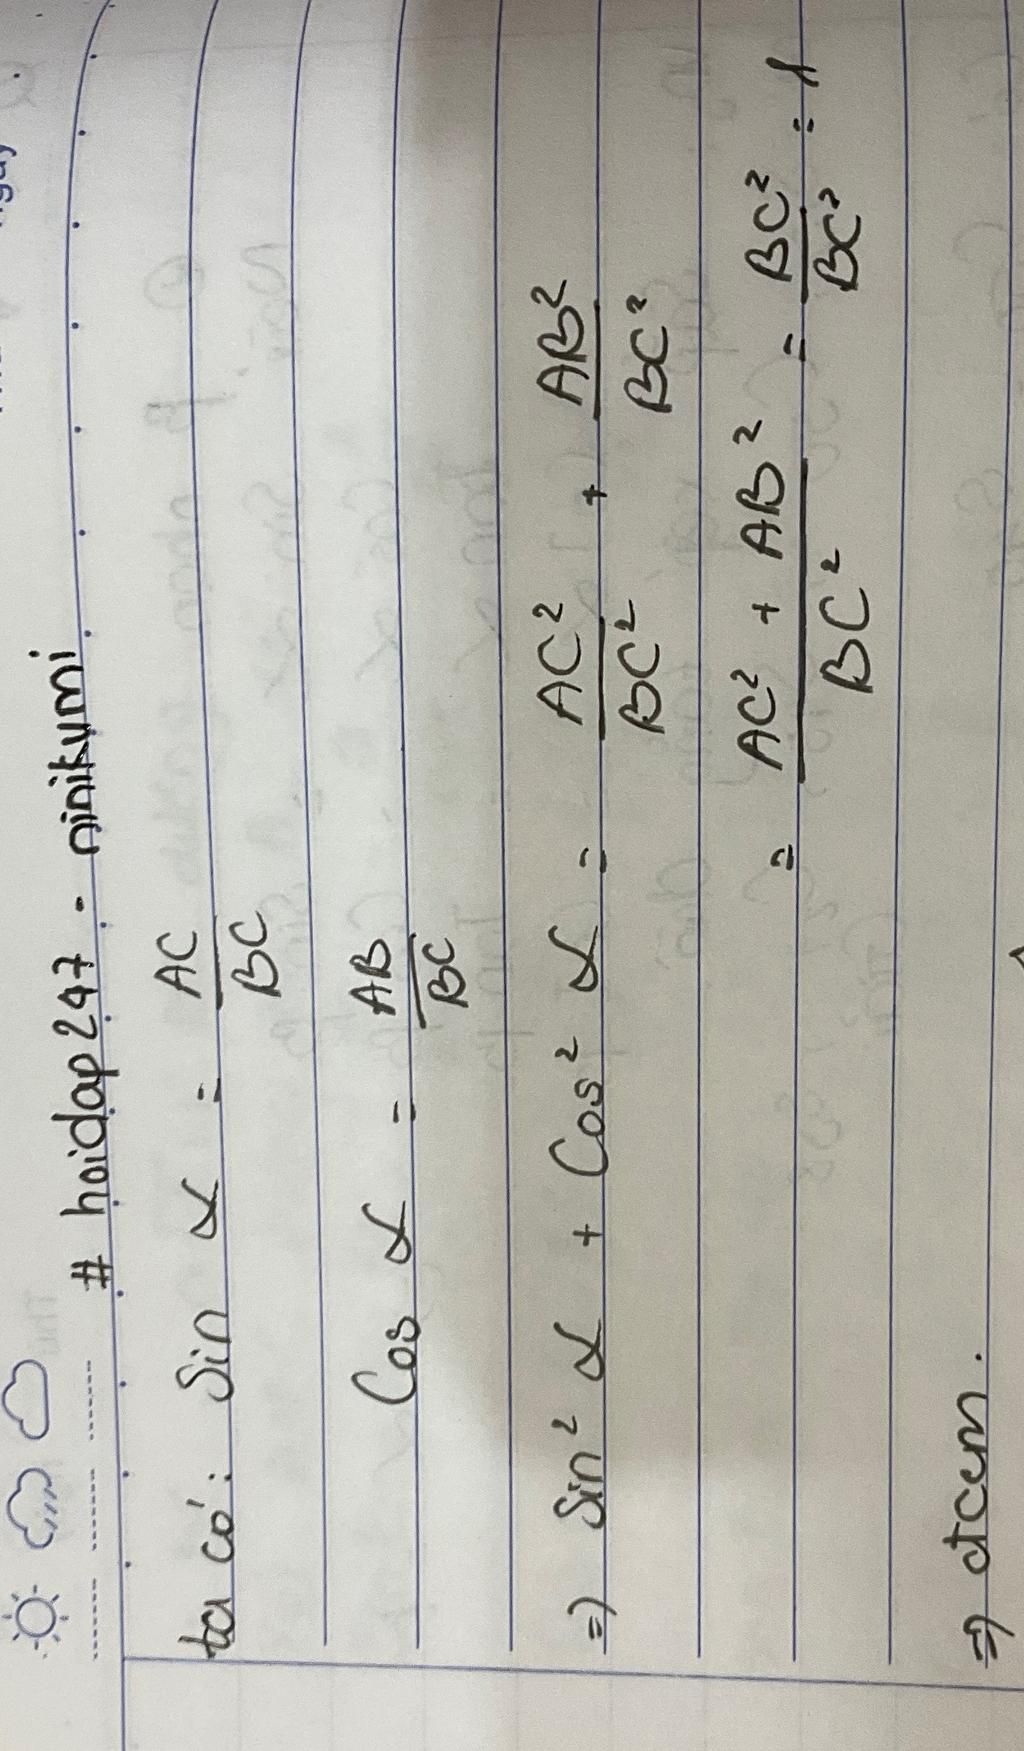 ngày
# hoidap247 - ninikumi
ta có: Sin α = AC/BC
Cos α = AB/BC
=> Sin² α + Cos² α = AC²/BC² + AB²/BC²
= (AC² + AB²)/BC² = BC²/BC² = 1
=> đccm.